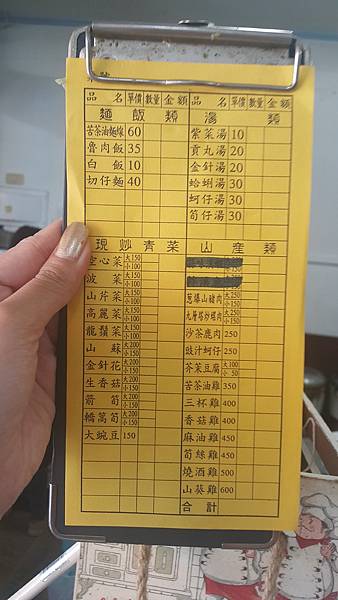 號
品 名 單價 數量 金額
麵飯類
苦茶油麵線 60
魯肉飯 35
白飯 10
切仔麵 40
品 名 單價 數量 金額
湯類
紫菜湯 10
貢丸湯 20
金針湯 20
蛤蜊湯 30
蚵仔湯 30
筍仔湯 30
現炒青菜
空心菜 大150 小100
波菜 大150 小100
山芹菜 大150 小100
高麗菜 大150 小100
龍鬚菜 大150 小100
山蘇 大200 小150
金針花 大200 小150
生香菇 大200 小150
箭筍 大200 小150
轎篙筍 大200 小150
大豌豆 150
山產類
蔥爆山豬肉 大250 小150
九層塔炒螺肉 大250 小150
沙茶鹿肉 250
豉汁蚵仔 250
芥茉豆腐 大100 小50
苦茶油雞 350
三杯雞 400
香菇雞 400
麻油雞 450
筍絲雞 450
燒酒雞 500
山葵雞 600
合計